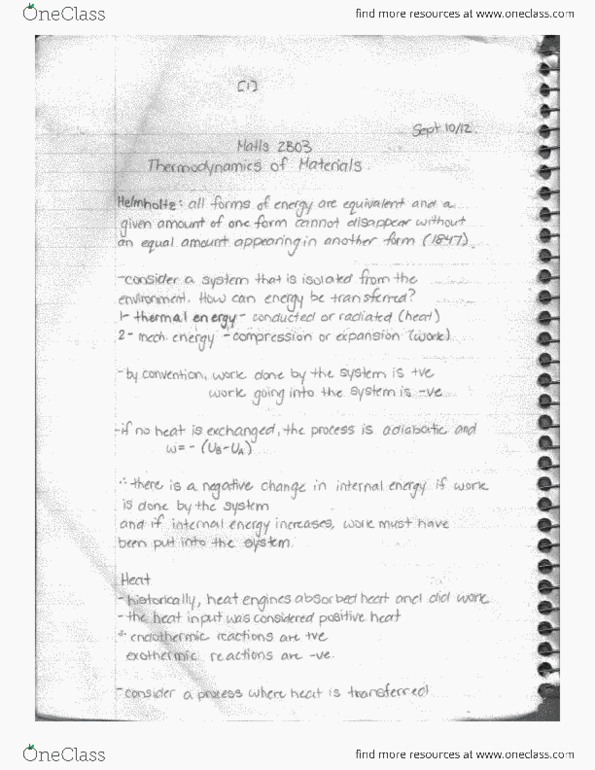 OneClass
find more resources at www.oneclass.com
[1]
Sept 10/12.
Matls 2B03
Thermodynamics of Materials.
Helmholtz: all forms of energy are equivalent and a
given amount of one form cannot disappear without
an equal amount appearing in another form (1847).
-consider a system that is isolated from the
environment. How can energy be transferred?
1- thermal energy- conducted or radiated (heat)
2- mech. energy -compression or expansion (work)
-by convention, work done by the system is +ve
work going into the system is -ve
-if no heat is exchanged, the process is adiabatic and
w=- (UB-UA)
∴there is a negative change in internal energy if work
is done by the system
and if internal energy increases, work must have
been put into the system.
Heat
-historically, heat engines absorbed heat and did work
-the heat input was considered positive heat
∴ endothermic reactions are +ve
exothermic reactions are -ve.
-consider a process where heat is transferred
OneClass
find more resources at www.oneclass.com